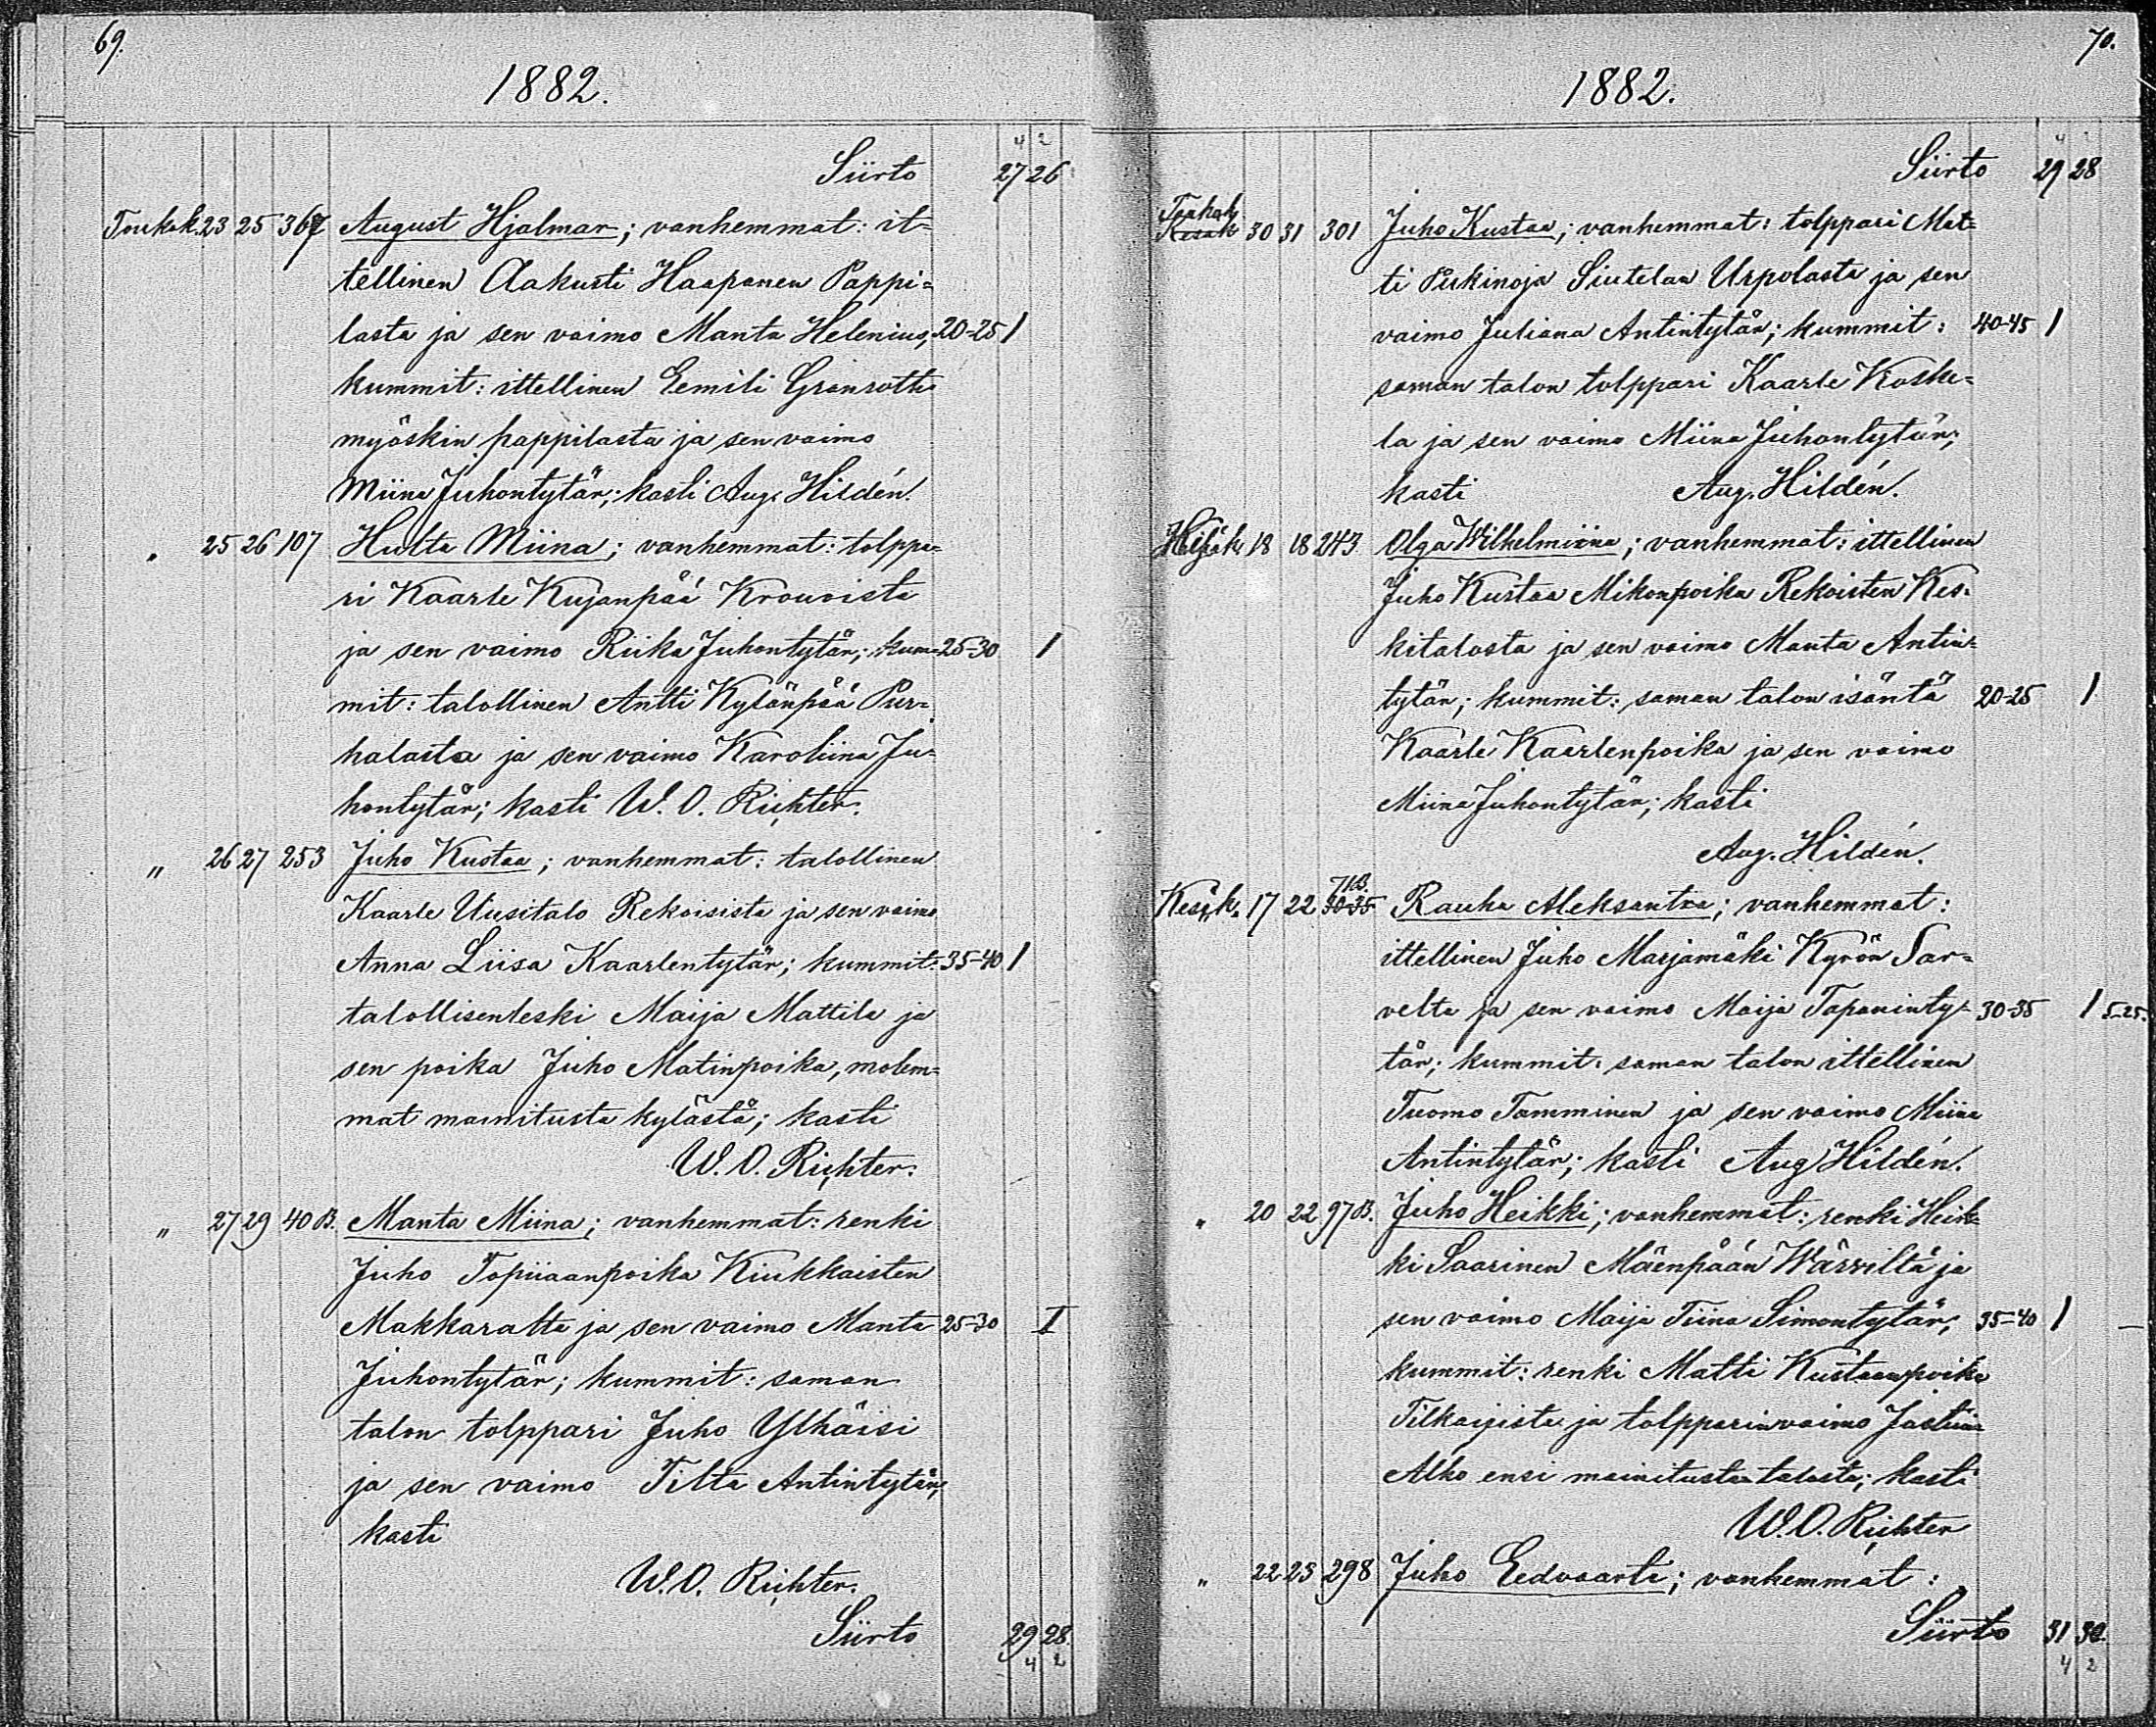 69.
1882.
4 2
Siirto 27 26
Toukok. 23 25 367 August Hjalmar; vanhemmat: it-
tellinen Aakusti Haapanen Pappi=
lasta ja sen vaimo Manta Helenius, 20-25 1
kummit: ittellinen Eemili Granroth
myöskin pappilasta ja sen vaimo
Miina Juhontytär; kasti Aug. Hildén.
" 25 26 107 Hulta Miina; vanhemmat: tolppa=
ri Kaarle Kujanpää Krouvista
ja sen vaimo Riika Juhontytär; kum= 25-30 1
mit: talollinen Antti Kylänpää Pur=
halasta ja sen vaimo Karoliina Ju=
hontytär; kasti W. O. Richter.
" 26 27 253 Juho Kustaa; vanhemmat: talollinen
Kaarle Uusitalo Rekoisista ja sen vaimo
Anna Liisa Kaarlentytär; kummit: 35-40 1
talollisenleski Maija Mattila ja
sen poika Juho Matinpoika, molem=
mat mainitusta kylästä; kasti
W. O. Richter.
" 27 29 40 B. Manta Miina; vanhemmat: renki
Juho Topiiaanpoika Kiukkaisten
Makkaralta ja sen vaimo Manta 25-30 1
Juhontytär; kummit: saman
talon tolppari Juho Ylhäisi
ja sen vaimo Tilta Antintytär;
kasti
W. O. Richter.
Siirto 29 28.
4 2
70.
1882.
4
Siirto 29 28
Toukok
Kesäk 30 31 301 Juho Kustaa; vanhemmat: tolppari Mat=
ti Siutelan Urpolasta ja sen
vaimo Juliana Antintytär; kummit: 40-45 1
saman talon tolppari Kaarle Koske=
la ja sen vaimo Miina Juhontytär;
kasti Aug. Hildén.
18 18 243 Olga Wilhelmiina; vanhemmat: ittellinen
Juho Kustaa Mikonpoika Rekoisten Kes=
kitalosta ja sen vaimo Manta Antin=
tytär; kummit: saman talon isäntä 20-25 1
Kaarle Kaarlenpoika ja sen vaimo
Miina Juhontytär; kasti
Aug. Hildén.
71 B.
Kesäk. 17 22 30-35 Rauha Aleksantra; vanhemmat:
ittellinen Juho Marjamäki Kyrön Sar=
velta ja sen vaimo Maija Tapaninty- 30-35 1 5-25.
tär; kummit: saman talon ittellinen
Tuomo Tamminen ja sen vaimo Miina
Antintytär; kasti Aug Hildén.
" 20 22 97 B. Juho Heikki; vanhemmat: renki Heik=
ki Saarinen Mäenpään Wärviltä ja
sen vaimo Maija Tiina Simontytär; 35-40 1
kummit: renki Matti Kustaanpoika
Tilkaisista ja tolpparinvaimo Justiina
Alho ensi mainitusta talosta; kasti
W. O. Richter
" 22 23 298 Juho Eedvaarti; vanhemmat:
Siirto 31 30.
4 2